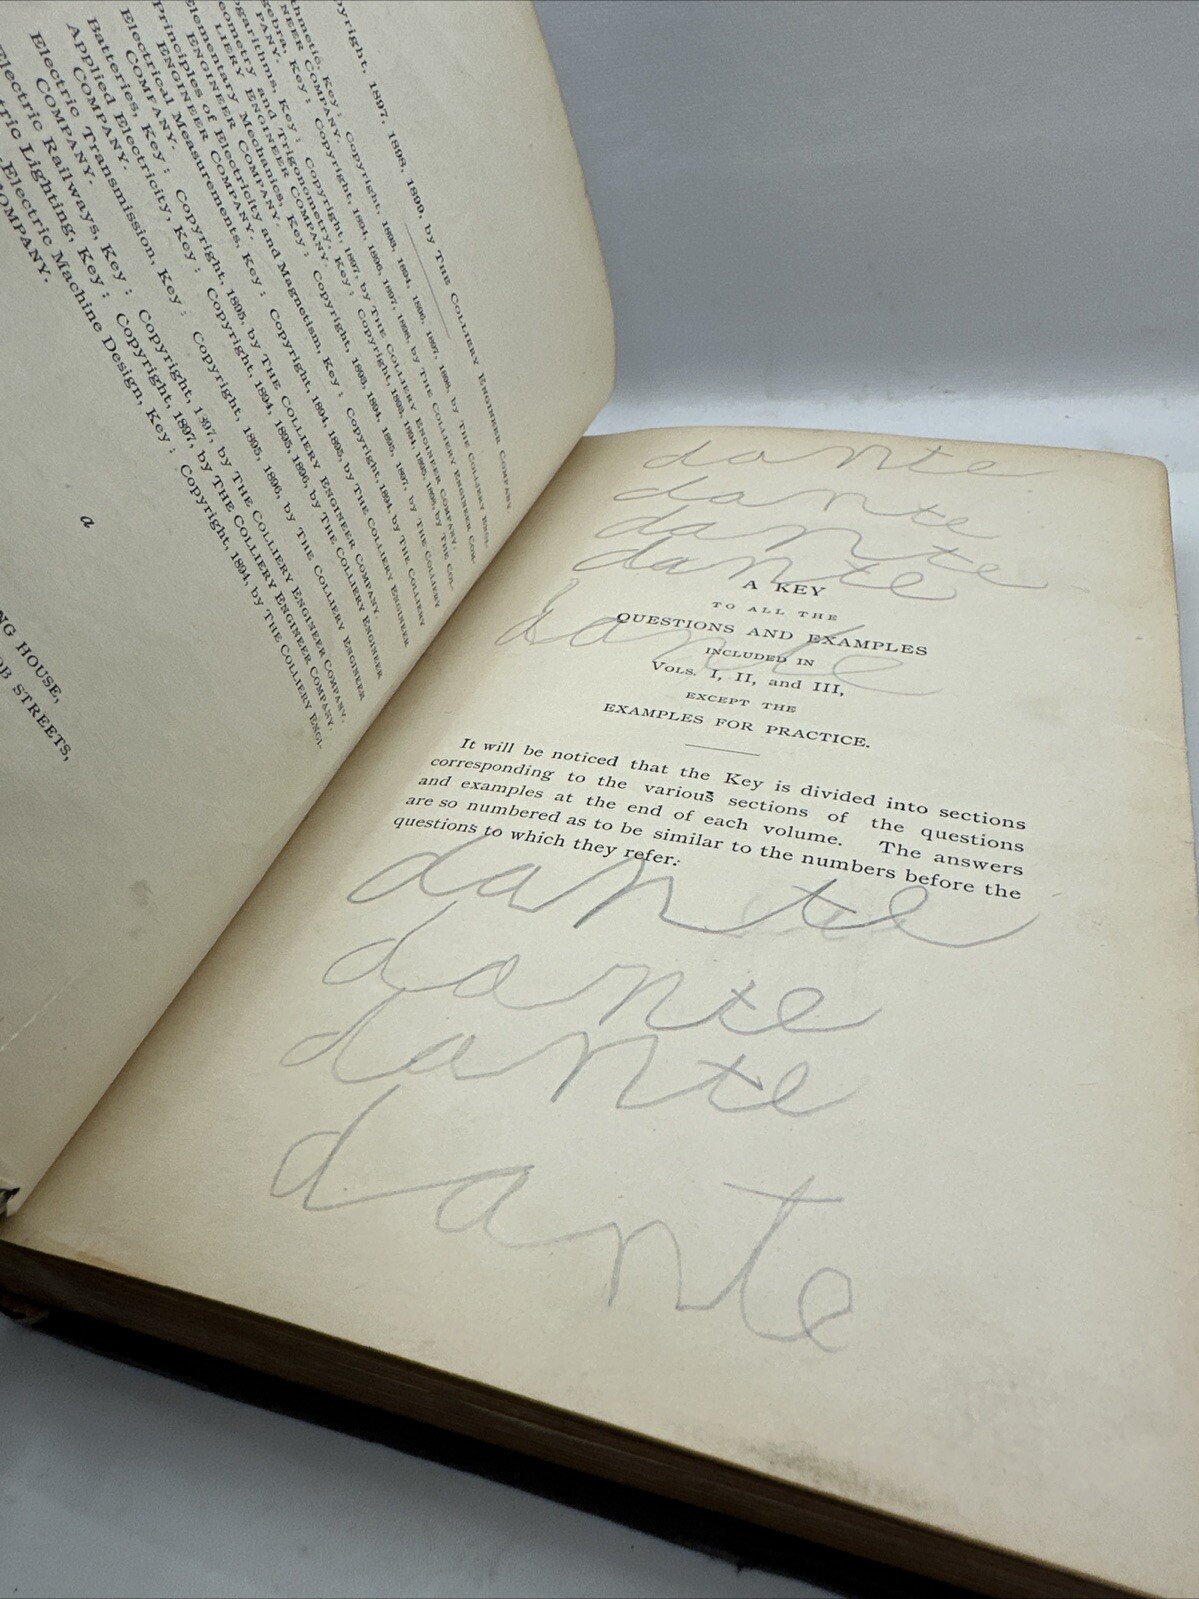 pyright, 1897, 1898, 1899, by THE COLLIERY ENGINEER COMPANY.
thmetic, Key: Copyright, 1893, 1894, 1896, 1897, 1898, by THE COLLIERY ENGI-
NEER COMPANY.
gebra, Key: Copyright, 1894, 1896, 1897, 1898, by THE COLLIERY ENGINEER COM-
PANY.
garithms, Key: Copyright, 1897, by THE COLLIERY ENGINEER COMPANY.
eometry and Trigonometry, Key: Copyright, 1893, 1894, 1895, 1898, by THE COL-
LIERY ENGINEER COMPANY.
Elementary Mechanics, Key: Copyright, 1893, 1894, 1895, 1897, by THE COLLIERY
ENGINEER COMPANY.
Principles of Electricity and Magnetism, Key: Copyright, 1894, by THE COLLIERY
ENGINEER COMPANY.
Electrical Measurements, Key: Copyright, 1894, 1895, by THE COLLIERY ENGINEER
COMPANY.
Batteries, Key: Copyright, 1895, by THE COLLIERY ENGINEER COMPANY.
Applied Electricity, Key: Copyright, 1894, 1895, 1896, by THE COLLIERY ENGINEER
COMPANY.
Electric Transmission, Key: Copyright, 1895, 1896, by THE COLLIERY ENGINEER
COMPANY.
Electric Railways, Key: Copyright, 1897, by THE COLLIERY ENGINEER COMPANY.
tric Lighting, Key: Copyright, 1897, by THE COLLIERY ENGINEER COMPANY.
Electric Machine Design, Key: Copyright, 1894, by THE COLLIERY ENGI-
OMPANY.
a
NG HOUSE,
OB STREETS,
dante
dante
dante
dante
A KEY
TO ALL THE
QUESTIONS AND EXAMPLES
dante
INCLUDED IN
VOLS. I, II, and III,
EXCEPT THE
EXAMPLES FOR PRACTICE.
It will be noticed that the Key is divided into sections
corresponding to the various sections of the questions
and examples at the end of each volume. The answers
are so numbered as to be similar to the numbers before the
questions to which they refer.
dante
dante
dante
dante